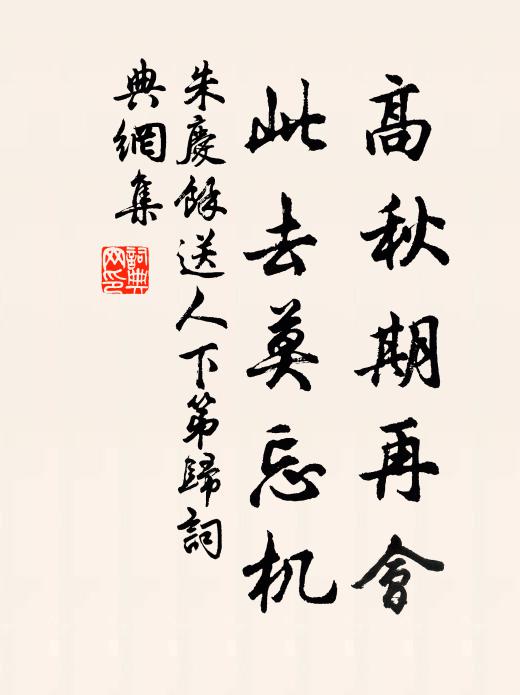 高秋期再會
此去莫忘机
朱慶餘送人下第歸詞
典網集
詞典
网印